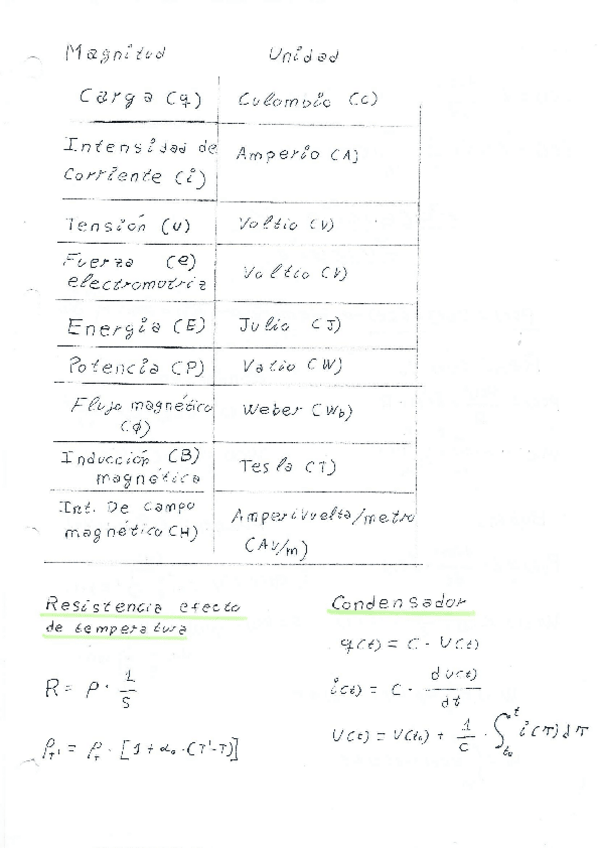 Magnitud Unidad
Carga (q) Culombio (C)
Intensidad de
Corriente (i) Amperio (A)
Tensión (u) Voltio (V)
Fuerza (e)
electromotriz Voltio (V)
Energía (E) Julio (J)
Potencia (P) Vatio (W)
Flujo magnético
(ϕ) Weber (Wb)
Inducción (B)
magnética Tesla (T)
Int. De campo
magnético (H) Amperivuelta/metro
(Av/m)
Resistencia efecto
de temperatura
R = ρ · 1/S
ρT' = ρT · [1 + α0 · (T'-T)]
Condensador
q(t) = C · U(t)
i(t) = C · du(t)/dt
U(t) = U(t0) + 1/C · ∫t0^t i(τ)dτ